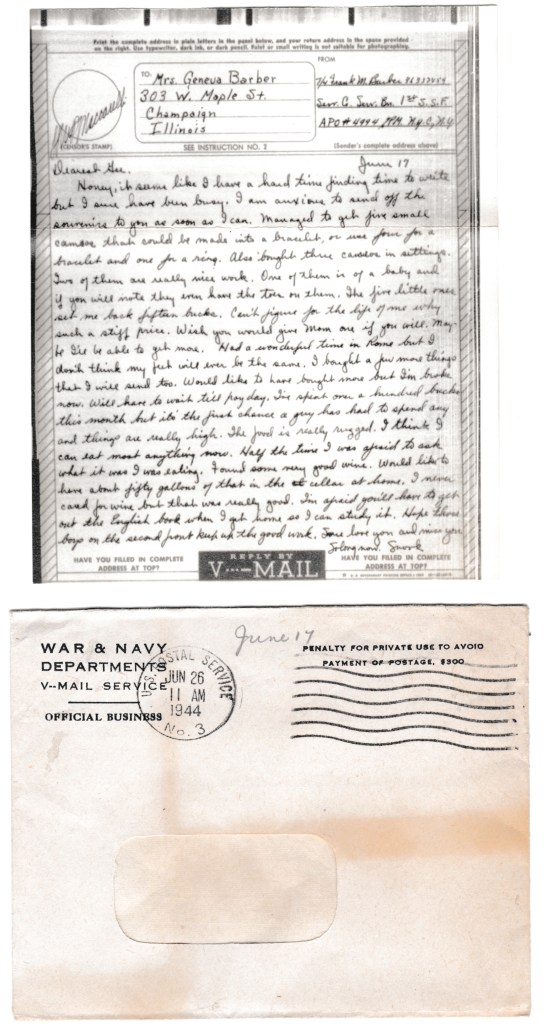 Print the complete address in plain letters in the panel below, and your return address in the space provided
on the right. Use typewriter, dark ink, or dark pencil. Faint or small writing is not suitable for photographing.
FROM
TO:
Mrs. Geneva Barber
303 W. Maple St.
Champaign
Illinois
T/4 Frank M. Barber
Serv. C. Serv. Bn 1st S.S.F.
APO # 4994, P.M. N.Y.C, N.Y
(CENSOR'S STAMP)
SEE INSTRUCTION NO. 2
(Sender's complete address above)
June 17
Dearest Gee.
Honey, it seems like I have a hard time finding time to write
but I sure have been busy. I am anxious to send off the
souvenirs to you as soon as I can. Managed to get five small
cameos that could be made into a bracelet, or use four for a
bracelet and one for a ring. Also bought three cameos in settings.
Two of them are really nice work. One of them is of a baby and
if you will note they even have the toes on them. The five little ones
set me back fifteen bucks. Can't figure for the life of me why
such a stiff price. Wish you would give Mom one if you will. May-
be I'll be able to get more. Had a wonderful time in Rome but I
don't think my feet will ever be the same. I bought a few more things
that I will send too. Would like to have bought more but I'm broke
now. Will have to wait till payday. I've spent over a hundred bucks
this month but it's the first chance a guy has had to spend any
and things are really high. The food is really rugged. I think I
can eat most anything now. Half the time I was afraid to ask
what it was I was eating. Found some very good wine. Would like to
have about fifty gallons of that in the cellar at home. I never
cared for wine but that was really good. I'm afraid you'll have to get
out the English book when I get home so I can study it. Hope those
boys on the second front keep up the good work. I love you and miss you
So long now.
HAVE YOU FILLED IN COMPLETE
ADDRESS AT TOP?
REPLY BY
V···-MAIL
HAVE YOU FILLED IN COMPLETE
ADDRESS AT TOP?
June 17
WAR & NAVY
DEPARTMENTS
V--MAIL SERVICE
OFFICIAL BUSINESS
U.S. POSTAL SERVICE
JUN 26
11 AM
1944
No. 3
PENALTY FOR PRIVATE USE TO AVOID
PAYMENT OF POSTAGE, $300